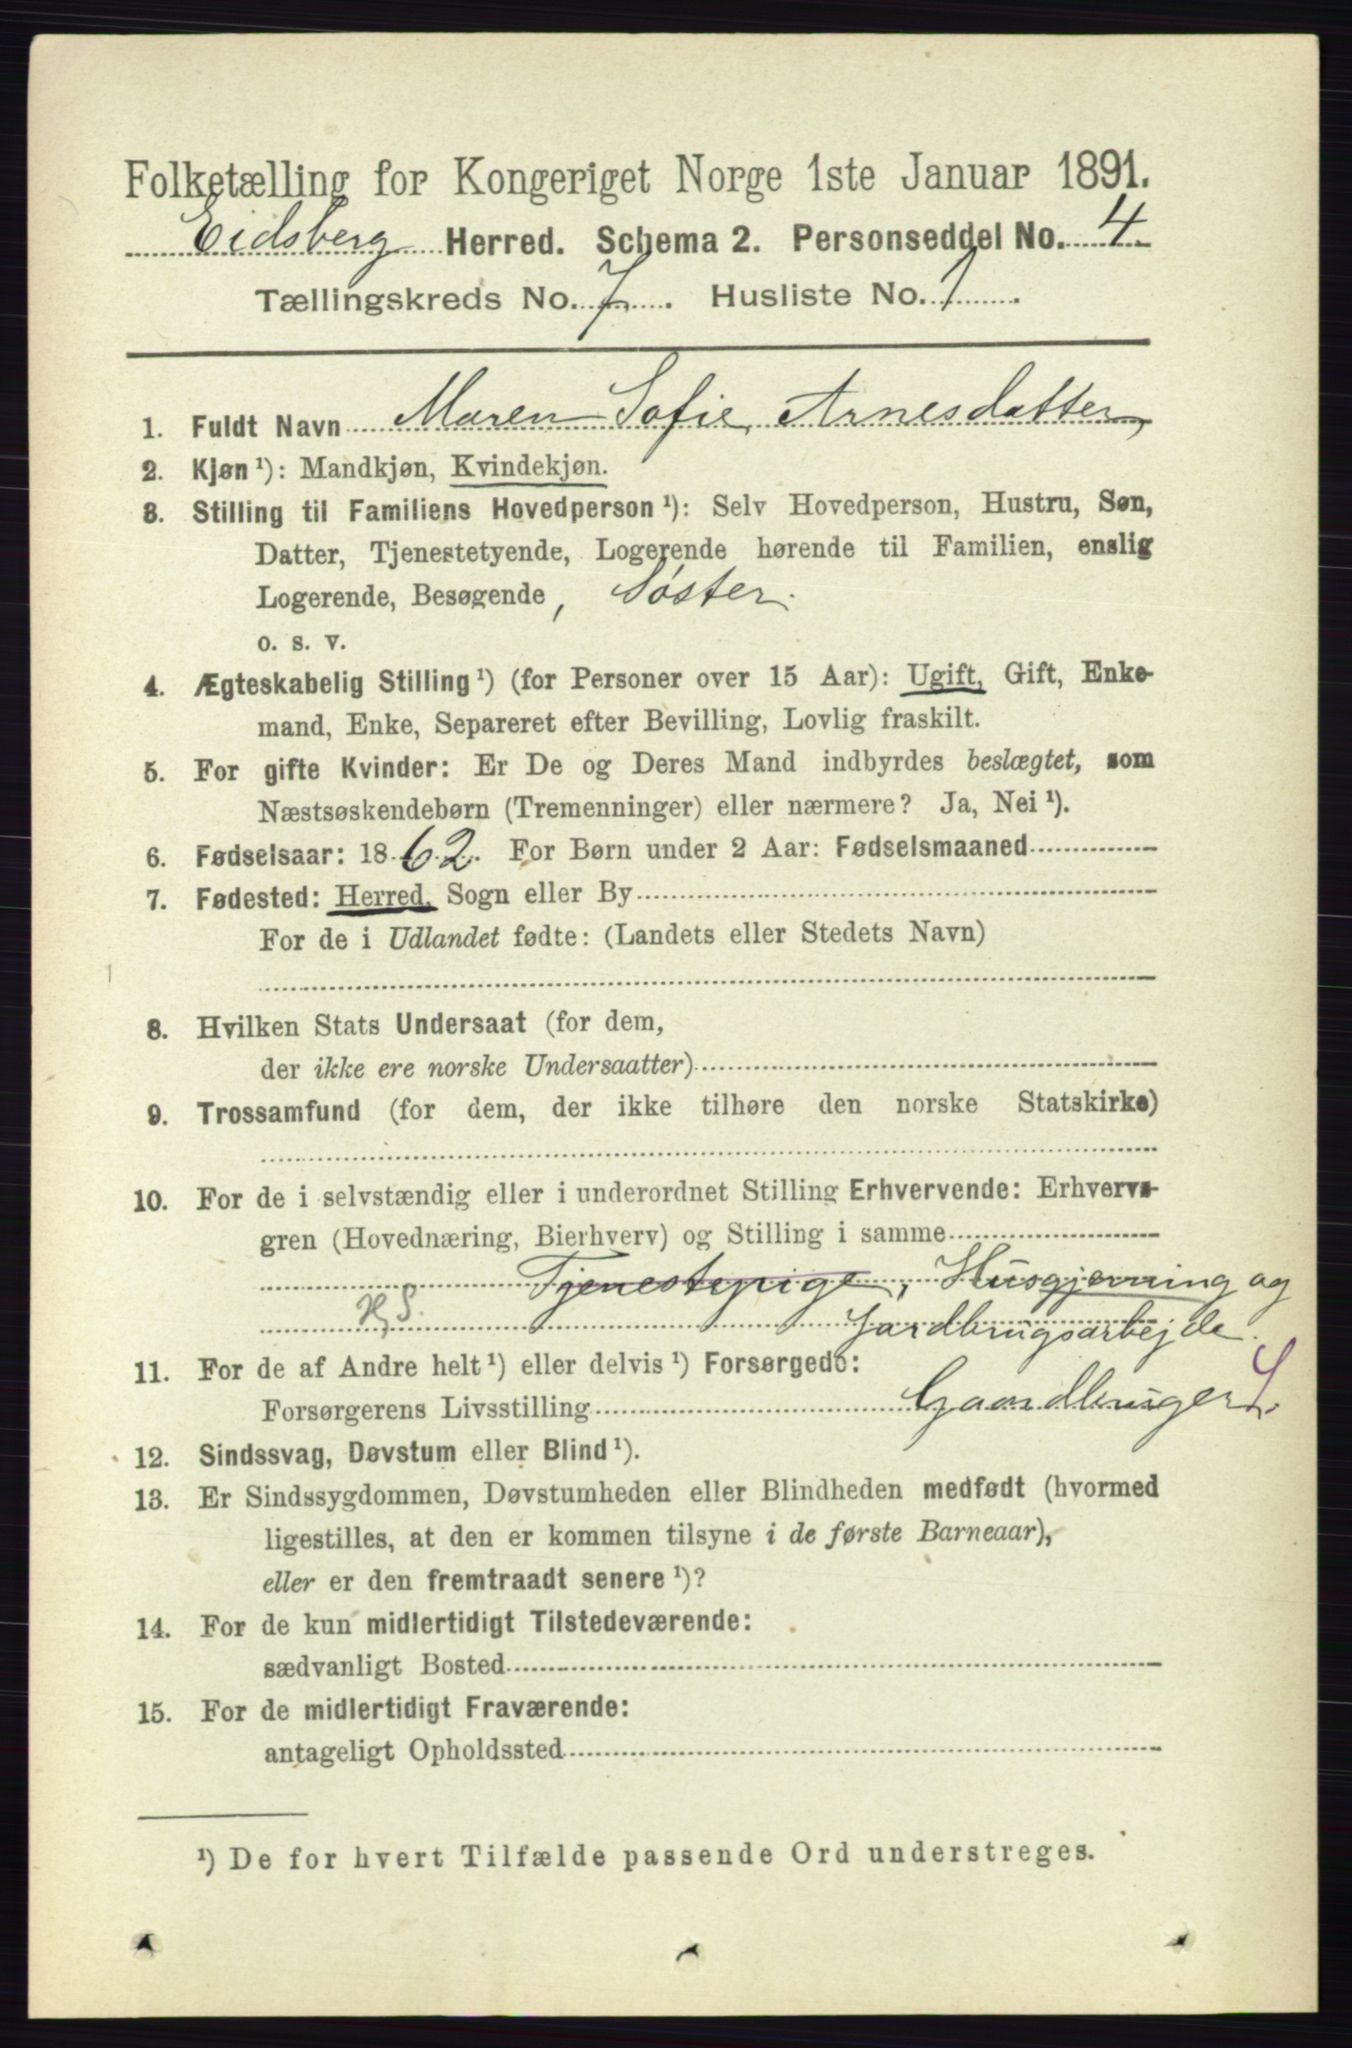 Folketælling for Kongeriget Norge 1ste Januar 1891.
Eidsberg Herred. Schema 2. Personseddel No. 4
Tællingskreds No. 7. Husliste No. 1.
1. Fuldt Navn Maren Sofie Arnesdatter,
2. Kjøn ¹): Mandkjøn, Kvindekjøn.
3. Stilling til Familiens Hovedperson ¹): Selv Hovedperson, Hustru, Søn,
Datter, Tjenestetyende, Logerende hørende til Familien, enslig
Logerende, Besøgende, Søster.
o. s. v.
4. Ægteskabelig Stilling ¹) (for Personer over 15 Aar): Ugift, Gift, Enke-
mand, Enke, Separeret efter Bevilling, Lovlig fraskilt.
5. For gifte Kvinder: Er De og Deres Mand indbyrdes beslægtet, som
Næstsøskendebørn (Tremenninger) eller nærmere? Ja, Nei ¹).
6. Fødselsaar: 1862. For Børn under 2 Aar: Fødselsmaaned
7. Fødested: Herred, Sogn eller By
For de i Udlandet fødte: (Landets eller Stedets Navn)
8. Hvilken Stats Undersaat (for dem,
der ikke ere norske Undersaatter)
9. Trossamfund (for dem, der ikke tilhøre den norske Statskirke)
10. For de i selvstændig eller i underordnet Stilling Erhvervende: Erhvervs-
gren (Hovednæring, Bierhverv) og Stilling i samme
Tjenestepige, Husgjerning og
Jordbrugsarbejde.
11. For de af Andre helt ¹) eller delvis ¹) Forsørgede:
Forsørgerens Livsstilling Gaardbruger
12. Sindssvag, Døvstum eller Blind ¹).
13. Er Sindssygdommen, Døvstumheden eller Blindheden medfødt (hvormed
ligestilles, at den er kommen tilsyne i de første Barneaar),
eller er den fremtraadt senere ¹)?
14. For de kun midlertidigt Tilstedeværende:
sædvanligt Bosted
15. For de midlertidigt Fraværende:
antageligt Opholdssted
¹) De for hvert Tilfælde passende Ord understreges.